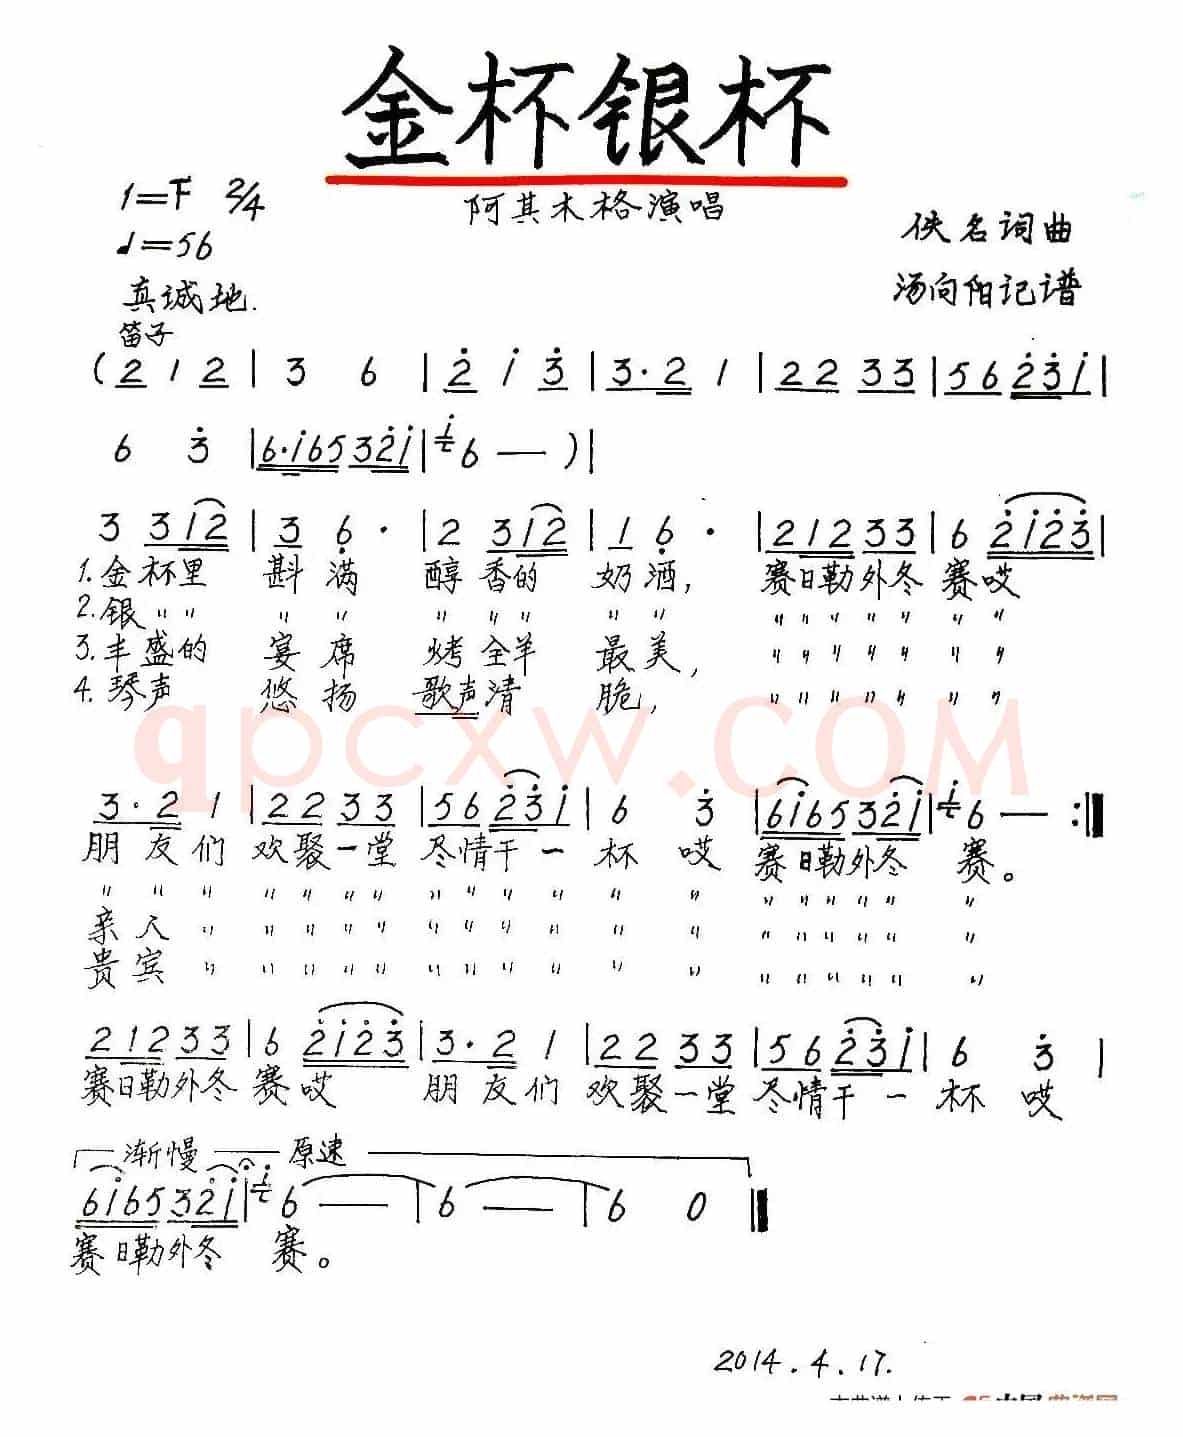 金杯银杯
阿其木格演唱
1=F 2/4
♩=56
真诚地.
佚名词曲
汤向阳记谱
笛子
(2 1 2 | 3 6 | 2̇ 1̇ 3̇ | 3·2 1 | 22 33 | 56 2̇3̇1̇ |
6 3̇ | 6·1̇65 32̇1̇ | 1̇ 6 — ) |
3 312 | 3 6̣· | 2 312 | 1 6̣· | 212 33 | 6 2̇1̇2̇3̇ |
1.金杯里 斟满 醇香的 奶酒, 赛日勒外冬赛哎
2.银 〃 〃 〃 〃 〃 〃 〃 〃 〃 〃 〃 〃 〃 〃 〃 〃
3.丰盛的 宴席 烤全羊 最美, 〃 〃 〃 〃 〃 〃 〃
4.琴声 悠扬 歌声清 脆, 〃 〃 〃 〃 〃 〃 〃
qpcxw.COM
3·2 1 | 22 33 | 56 2̇3̇1̇ | 6 3̇ | 61̇65 32̇1̇ | 1̇ 6 — :‖
朋友们 欢聚一堂 尽情干一杯哎 赛日勒外冬 赛。
〃 〃 〃 〃 〃 〃 〃 〃 〃 〃 〃 〃 〃 〃 〃 〃 〃 〃 〃
亲人 〃 〃 〃 〃 〃 〃 〃 〃 〃 〃 〃 〃 〃 〃 〃 〃 〃
贵宾 〃 〃 〃 〃 〃 〃 〃 〃 〃 〃 〃 〃 〃 〃 〃 〃 〃
212 33 | 6 2̇1̇2̇3̇ | 3·2 1 | 22 33 | 56 2̇3̇1̇ | 6 3̇ |
赛日勒外冬 赛哎 朋友们 欢聚一堂 尽情干一 杯哎
渐慢 原速
61̇65 32̇1̇ | 1̇ 6 — | 6 — | 6 0 ‖
赛日勒外冬 赛。
2014.4.17.